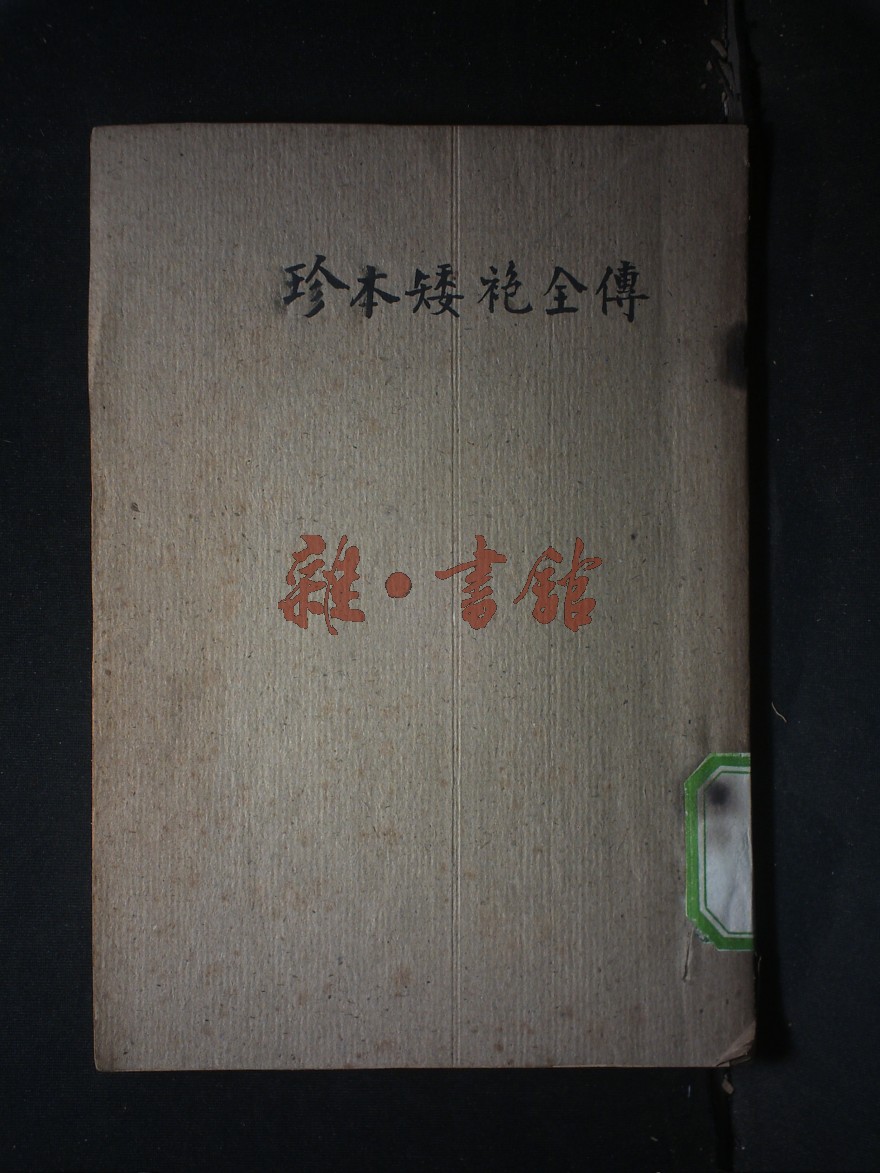 珍本矮袍全傳
雜·書館